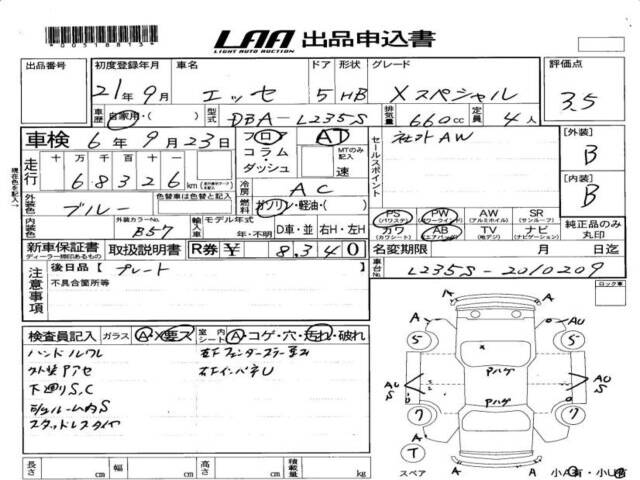 *00518813*
LAA 出品申込書
LIGHT AUTO AUCTION
出品番号 初度登録年月 車名 ドア 形状 グレード 評価点
21年9月 エッセ 5 HB Xスペシャル 3.5
車歴 自家用・( ) 型式 DBA-L235S 排気量 660cc 定員 4人
車検 6年9月23日 フロア AT 社外AW
[外装] B
コラム・ダッシュ MTのみ記入 速
セールスポイント
走行 十万 万 千 百 十 一
68326 km
冷房 AC
[内装] B
外装色 ブルー 色替車は色替と記入
燃料 ガソリン・軽油・( )
内装色 外装カラーNo. B57
輸入車 モデル年式 年・不明 D車・並 右H・左H
PS (パワステ) PW (パワーウインド) AW (アルミホイル) SR (サンルーフ)
カワ (カワシート) AB (エアバッグ) TV (地デジ) ナビ (ナビゲーション)
純正品のみ丸印
現在色を記入
新車保証書 ディーラー様印あるもの 取扱説明書 R券 ¥ 8,340
名変期限 月 日迄
車台No. L235S-2010209
注意事項 後日品 [プレート ]
不具合箇所等
ロック車
検査員記入 ガラス A・X要ス 室内シート A・コゲ・穴・汚れ・破れ
ハンドルワレ
外装アアセ
下廻りS,C
スタッドレスタイヤ
A A
A AU
5 5
Pハゲ
AU S AU S
Pハゲ
7 7
T
スペア A A 小A有・小U有
長さ cm 幅 cm 高さ cm 積載量 kg